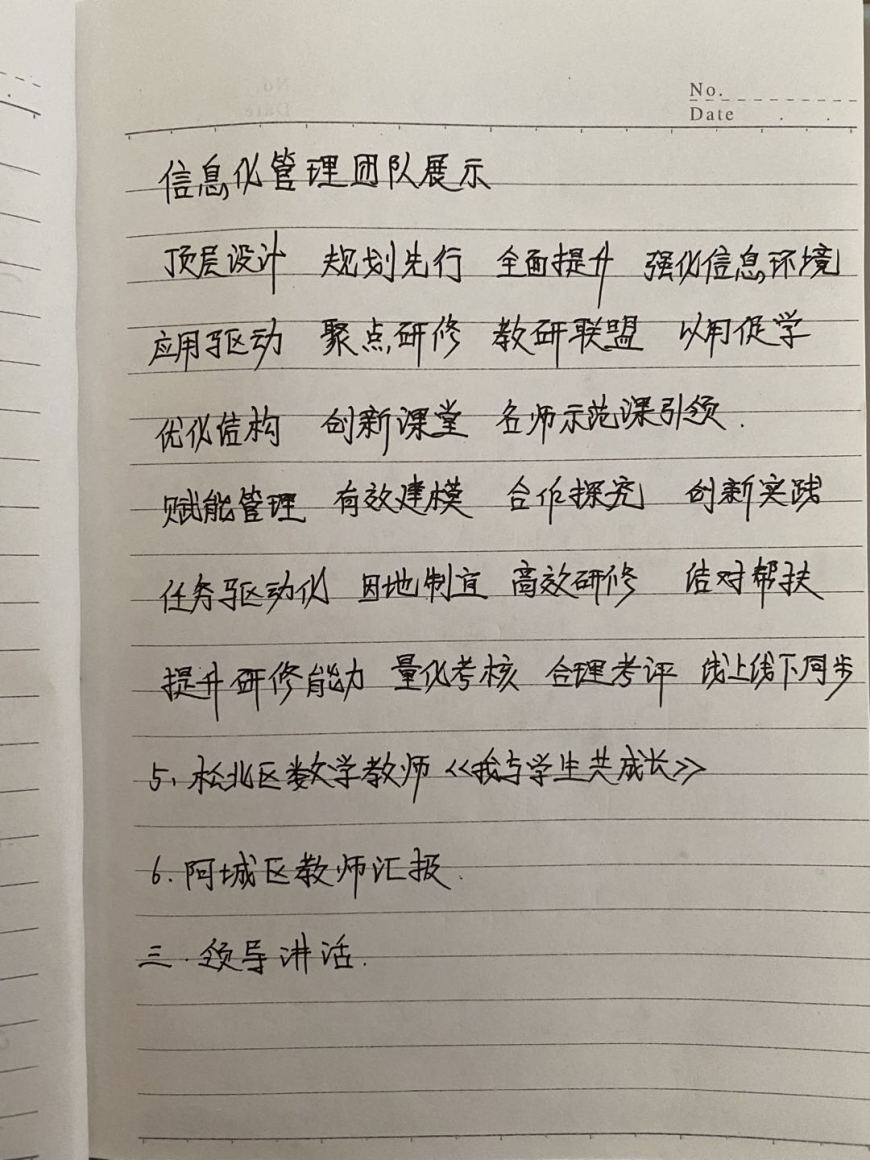 No.
Date
信息化管理团队展示
顶层设计 规划先行 全面提升 强化信息环境
应用驱动 聚点研修 教研联盟 以用促学
优化结构 创新课堂 名师示范课引领.
赋能管理 有效建模 合作探究 创新实践
任务驱动化 因地制宜 高效研修 结对帮扶
提升研修能力 量化考核 合理考评 线上线下同步
5、松北区数学教师《我与学生共成长》
6.阿城区教师汇报.
三.领导讲话.